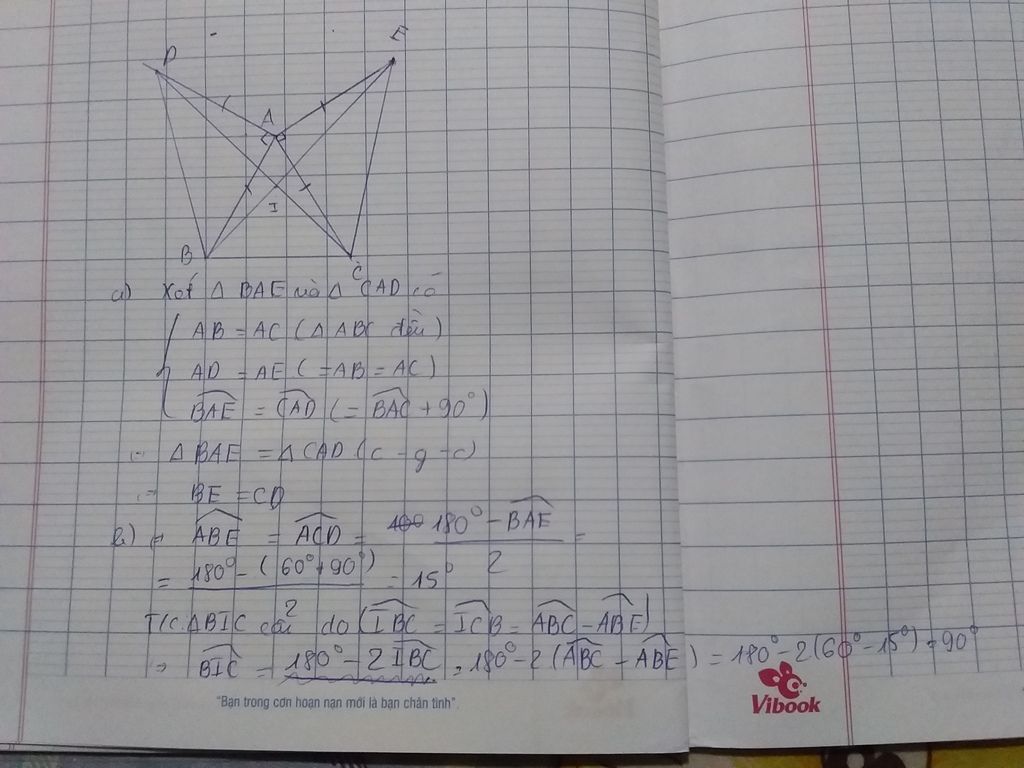 D
E
A
I
B
C
a) Xét Δ BAE và Δ CAD có
AB = AC (Δ ABC đều)
AD = AE (=AB = AC)
BAE = CAD (= BAC + 90°)
=> Δ BAE = Δ CAD (c - g - c)
=> BE = CD
b) => ABE = ACD = 180° - BAE / 2 =
= 180° - (60° + 90°) / 2 = 15°
T/C ΔBIC cân do (IBC = ICB = ABC - ABE)
=> BIC = 180° - 2 IBC = 180° - 2 (ABC - ABE) = 180° - 2 (60° - 15°) = 90°
"Bạn trong cơn hoạn nạn mới là bạn chân tình".
Vibook